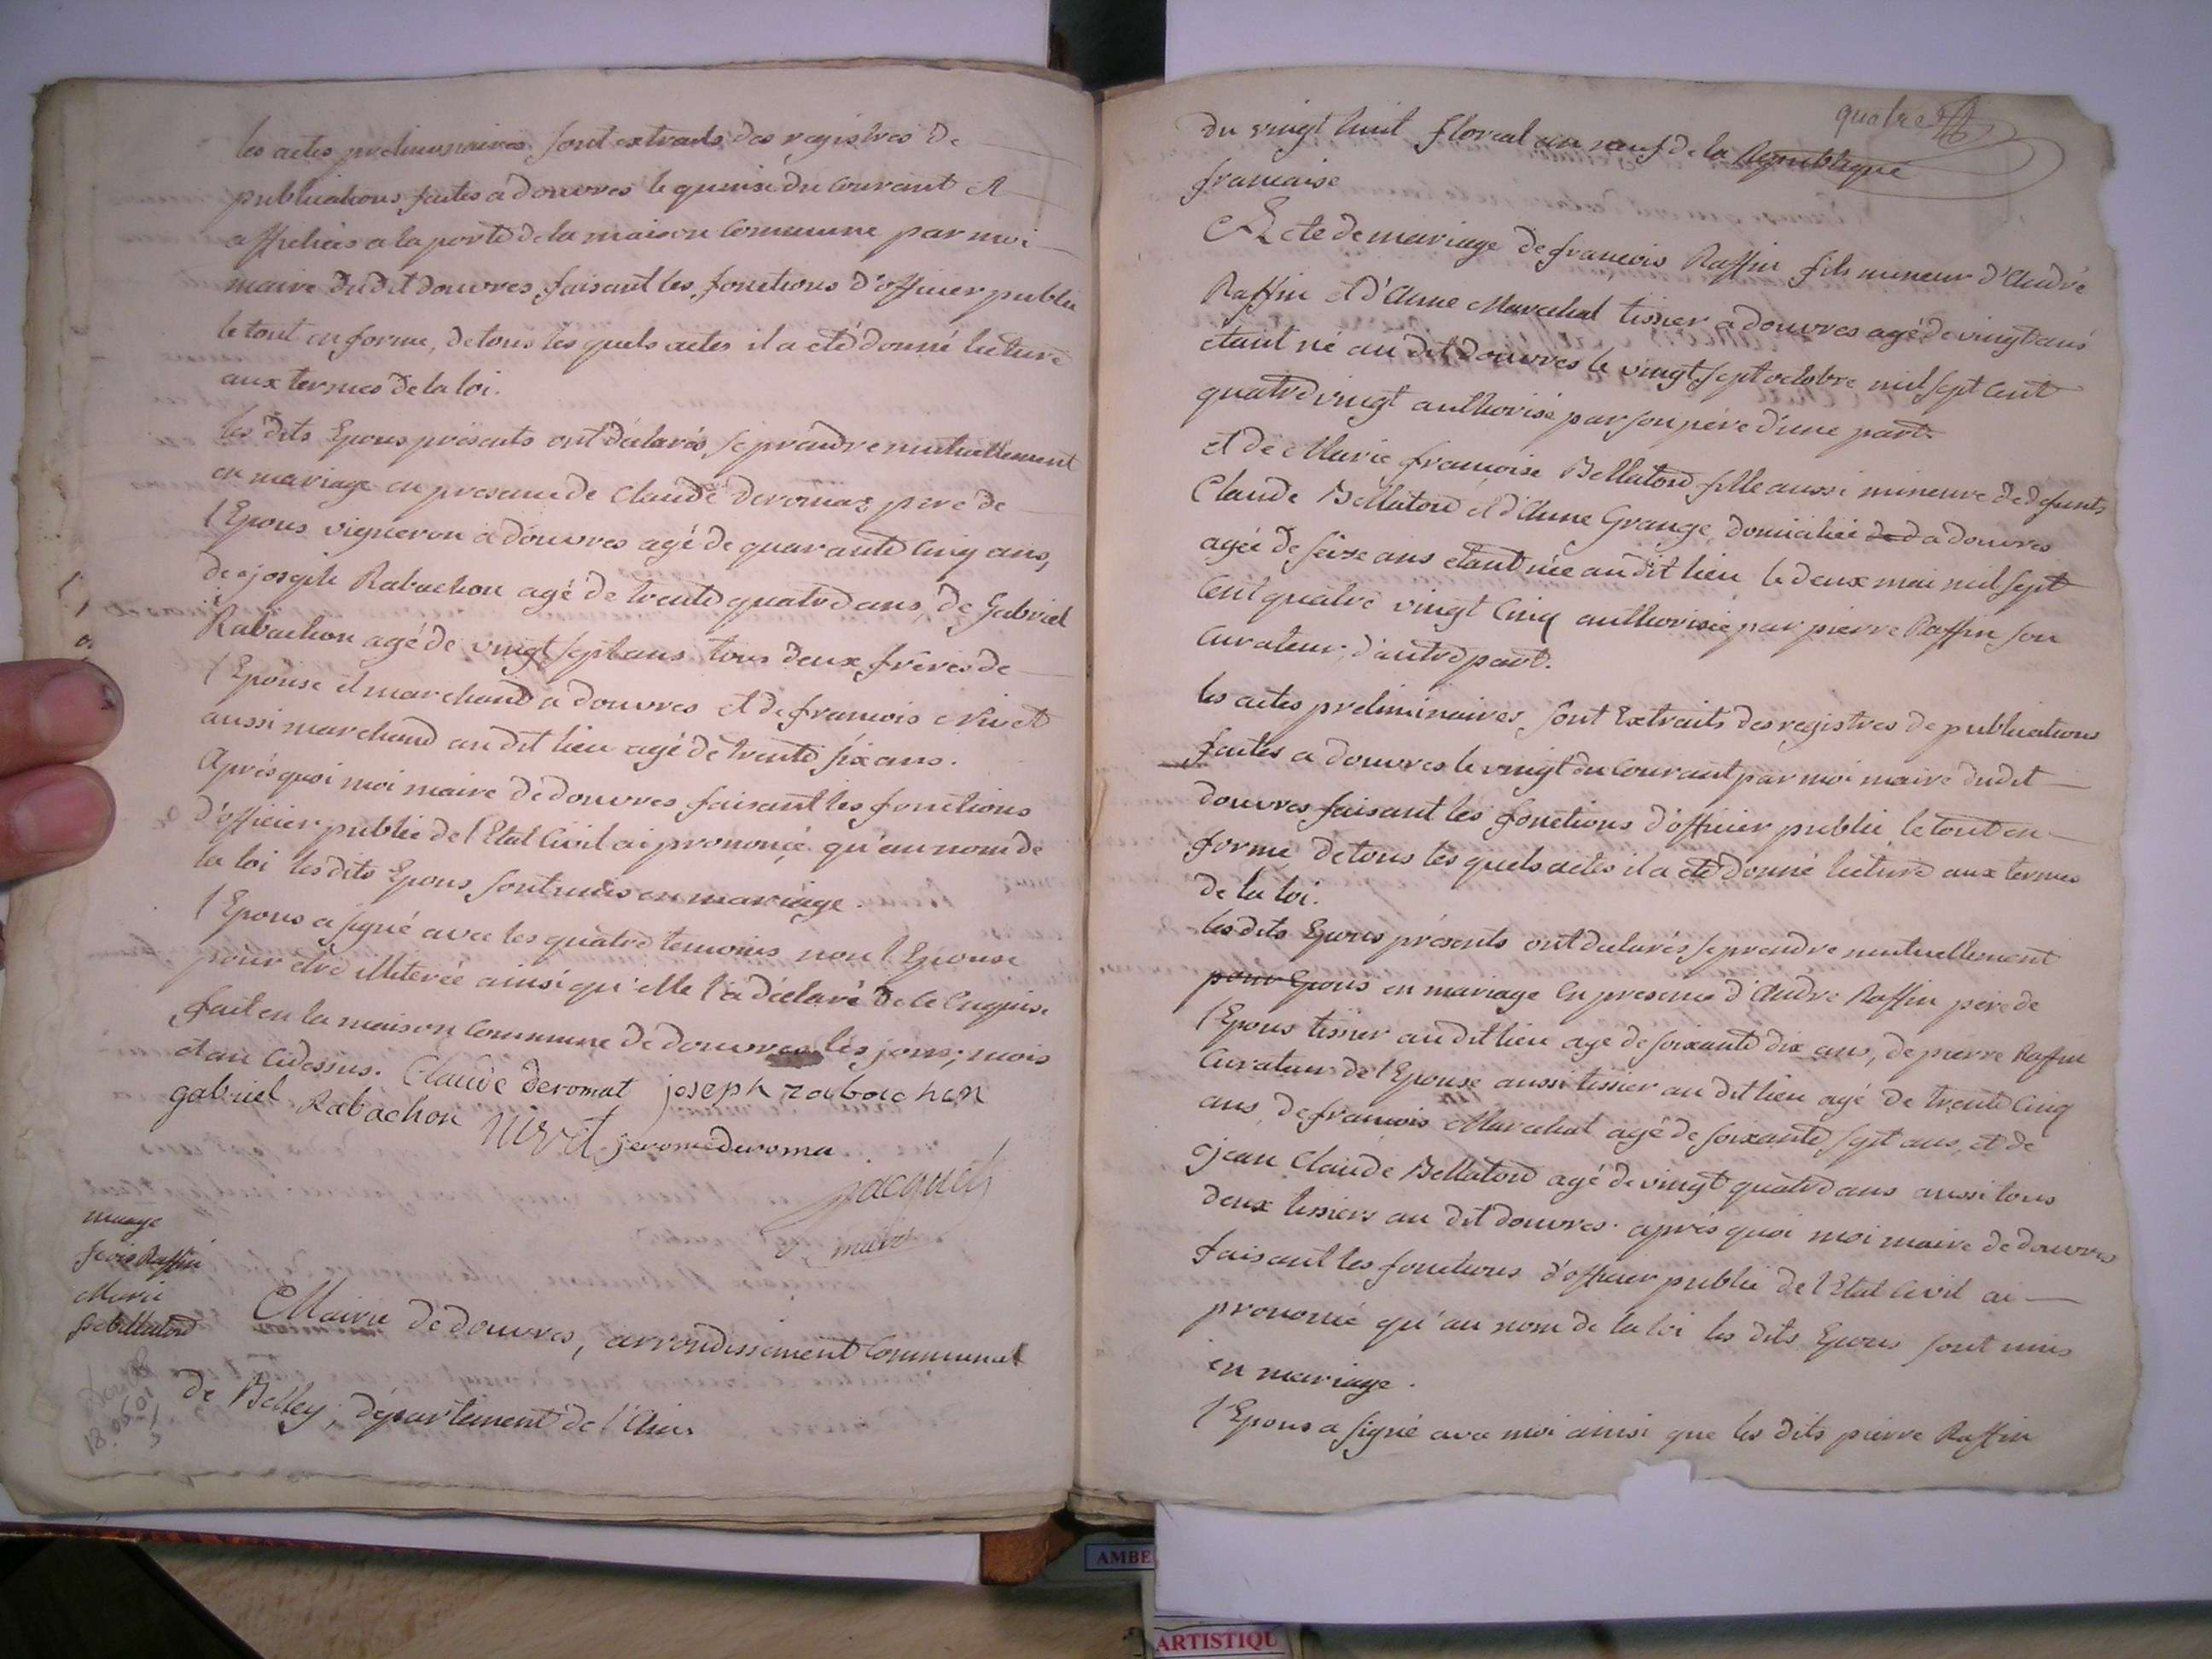 les actes preliminaires sont extraits des registres de
publications faites a douvres le quinse du courant et
affichées a la porte de la maison Commune par moi
maire du dit douvres faisant les fonctions d'officier public
le tout en forme, de tous les quels actes il a eté donné lecture
aux termes de la loi.
les dits Epous présents ont déclarés, se prendre mutuellement
en mariage en presence de Claude Deromaz pere de
l'Epous vigneron a douvres agé de quarante Cinq ans,
de joseph Rabachon agé de trente quatre ans, de Gabriel
Rabachon agé de vingt sept ans tous deux frères de
l'Epouse et marchand a douvres et de francois Nivet
aussi marchand au dit lieu agé de trente six ans.
Après quoi moi maire de douvres faisant les fonctions
d'officier public de l'Etat Civil ai prononcé qu'au nom de
la loi les dits Epous sont unis en mariage.
l'Epous a signé avec les quatre temoins non l'Epouse
pour etre illiterée ainsi qu'elle l'a déclaré de ce Enquise
fait en la maison Commune de douvres les jour, mois
et an Cidessus. Claude deromat joseph rabachon
gabriel Rabachon Nivet jerome deroma
jacquet
maire
mariage
fcois Raffin
Marie
f. Bellatord
Mairie de douvres, arrondissement Communal
de Belley, département de l'Ain
quatre
Du vingt huit floreal an neuf de la Republique
francaise
Acte de mariage de francois Raffin fils mineur d'André
Raffin et d'Anne Marechal tissier a douvres agé de vingt ans
etant né au dit douvres le vingt sept octobre mil sept cent
quatre vingt authorisé par son père d'une part.
et de Marie francoise Bellatord fille aussi mineure de defunts
Claude Bellatord et d'Anne Grange, domiciliée de d a douvres
agée de seize ans etant née au dit lieu le deux mai mil sept
Cent quatre vingt Cinq authorisée par pierre Raffin son
Curateur, d'autre part.
les actes preliminaires, sont Extraits des registres de publications
faites a douvres le vingt du courant par moi maire du dit
douvres faisant les fonctions d'officier public le tout en
forme de tous les quels actes il a eté donné lecture aux termes
de la loi.
les dits Epous présents ont declarés se prendre mutuellement
pour Epous en mariage En presence d'André Raffin père de
l'Epous tissier au dit lieu agé de soixante dix ans, de pierre Raffin
Curateur de l'Epouse aussi tissier au dit lieu agé de trente Cinq
ans, de francois Marechal agé de soixante sept ans, et de
jean Claude Bellatord agé de vingt quatre ans aussi tous
deux tissiers au dit douvres. après quoi moi maire de douvres
faisant les fonctions d'officier public de l'Etat Civil ai
prononcé qu'au nom de la loi les dits Epous sont unis
en mariage.
l'Epous a signé avec moi ainsi que les dits pierre Raffin
AMBE
ARTISTIQU